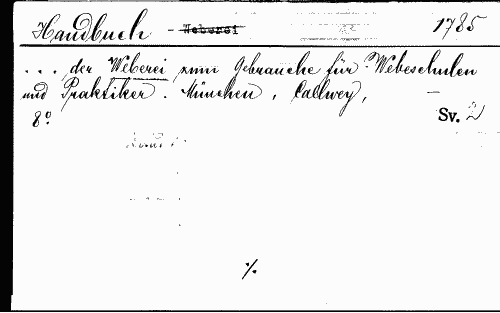 Handbuch - Weberei 1785
... der Weberei zum Gebrauche für Webeschulen
und Praktiker. München, Callwey, –
8° Sv. 2
·/.